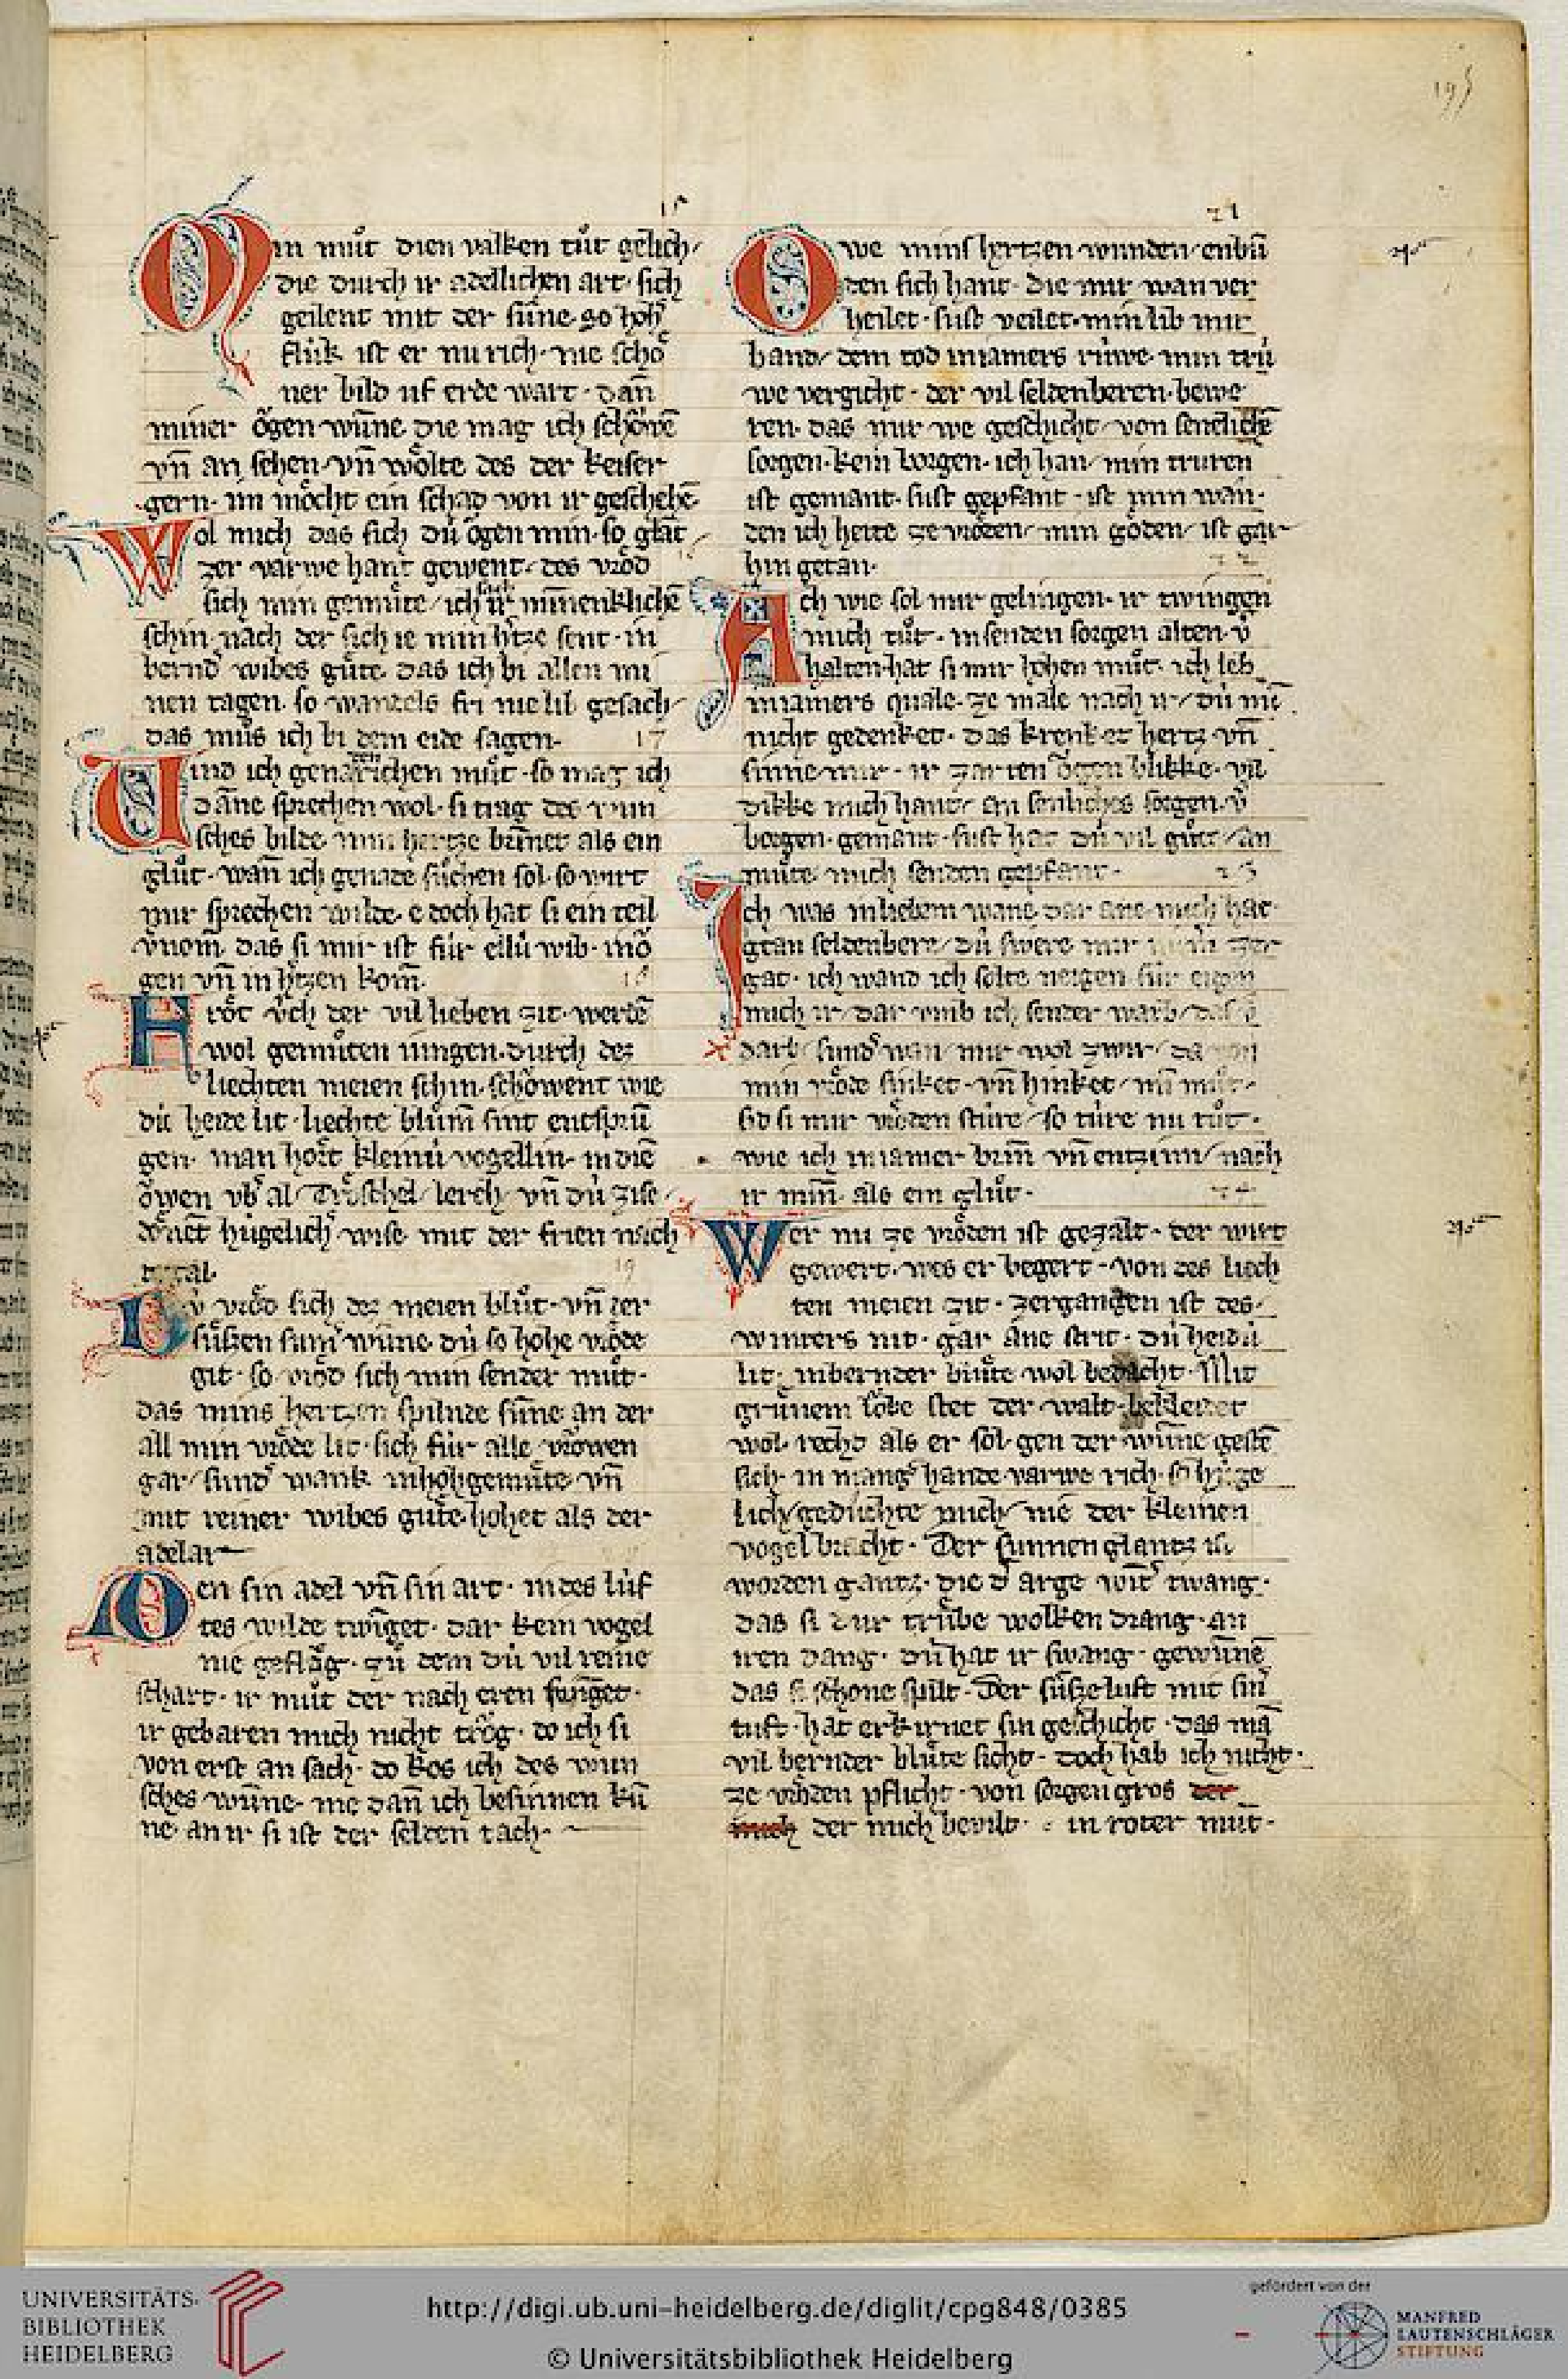 195
15
Min muͦt dien valken tuͦt gelich
die durch ir adellichen art· sich
geilent mit der suñe· so hoh
fluk ist er nu rich· nie scho
ner bild uf erde wart· dañ
miner oͮgen wuñe die mag ich schoͮwē
vñ an sehen· vñ woͤlte des der keiser
gern· im moͤcht ein schad von ir geschehē
Wol mich das sich dú oͮgen min· so glāt
zer varwe hant gewent· des vroͤd
sich min gemuͤte/ ich ir minnenklichē
schin· nach der sich ie min h'tze sent· in
bernd' wibes guͤte· das ich bi allen mi
nen tagen· so wandels fri nie lib gesach
das muͦs ich bi dem eide sagen· 17
Und ich genaden richen muͦt· so mag ich
dāne sprechen wol· si trag des wun
sches bilde· min hertze briñet als ein
gluͦt· wañ ich genade suͦchen sol· so wirt
mir sprechen wilde· e doch hat si ein teil
v'nom̄ das si mir ist fúr ellú wib· mō
gen vñ in h'tzen kom̄· 18
Froͤt úch der vil lieben zit· werdē
wol gemuͦten iungen· durch des
liechten meien schin· schoͮwent wie
dú heide lit· liechte bluͦm̄ sint entsprū
gen· man hoͤrt kleinú vogellin· in diē
oͮwen vb' al/ Troͤschel/ lerch/ vñ dú zise
doͤnēt húgelich' wise· mit der frien nach
tegal· 19
Dv́ vroͤd sich des meien bluͤt· vñ der
suͤssen sum' wuñe· dú so hohe vroͤde
git· so vroͤd sich min sender muͦt·
das mins hertzen spilnde suñe an der
all min vroͤde lit· sich fúr alle vroͮwen
gar/ sund' wank inhohgemuͤte· vñ
mit reiner wibes guͤte· hohet als der
adelar
Den sin adel vñ sin art· in des luf
tes wilde twiñget· dar kein vogel
nie gefloͮg· zuͦ dem dú vil reine
schart· ir muͦt der nach eren swinget·
ir gebaren mich nicht troͮg· do ich si
von erst an sach· do kos ich des wun
sches wuñe· nie dañ ich besinnen kū
ne· an ir si ist der selden tach·
21
Owe mins hertzen wunden/ enbū
den sich hant· die mir wan ver
heilet· sust veilet· min lib mir
hand/ dem tod iniamers rúwe· min trú
we vergicht· der vil seldenberen· bewe
ren· das mir we geschicht/ von senelichē
sorgen· kein borgen· ich han/ min truren
ist gemant· sust gepfant· ist min wan·
den ich hette ze vroͤden/ min goͤden/ ist gar
hin getan· 22
Ach wie sol mir gelingen· ir twingen
mich tuͦt· insenden sorgen alten· v'
halten· hat si mir hohen muͦt· ich leb
iniamers quale· ze male nach ir/ dú mī
nicht gedenket· das krenket hertz vñ
sinne mir· ir zarten oͮgen blikke· vil
dikke mich hant/ an senliches sorgen· v'
borgen· gemant· sust hat dú vil guͦt/ an
muͤte/ mich senden gepfant· 23
Ich was inliebem wane· dar ane mich hat·
gtan seldenbere/ dú swere mir
gat· ich wand ich solte neigen· fúr eigen
mich ir/ dar umb ich sender warb/ das v'
darb/ sund' wan/ mir wol zwir/ da von
min vroͤde sinket· vñ hinket/ min muͦt·
sid si mir vroͤden stúre/ so túre nu tuͦt·
wie ich iniamer briñ vñ entzinn/ nach
ir miñ· als ein gluͦt· 24
Wer nu ze vroͤden ist gezalt· der wirt
gewert· wes er begert· von des liech
ten meien zit· zergangen ist des·
winters nit· gar āne strit· dú heidú
lit· inbernder bluͤte wol bedacht· Mit
gruͤnem loͮbe stet der walt· bekleidet
wol· recht als er sol· gen der wuñe gestē
sich· in mang' hande· varwe rich· so húge
lich/ geduchte mich/ nie der kleinen
vogel bracht· Der sunnen glantz ist
worden gantz· die d' arge wīt' twang·
das si dur truͤbe wolken drang· an
iren dang· dú hat ir swang· gewuñē
das si schone spilt· Der suͤsse luft mit sin'
tuft· hat erkirnet sin geschicht· das mā
vil bernder bluͤte sicht· doch hab ich nicht·
ze vroͤden pflicht· von sorgen gros der
mich der mich bevilt· in roter mut·
UNIVERSITÄTS-
BIBLIOTHEK
HEIDELBERG
http://digi.ub.uni-heidelberg.de/diglit/cpg848/0385
© Universitätsbibliothek Heidelberg
gefördert von der
MANFRED
LAUTENSCHLÄGER
STIFTUNG